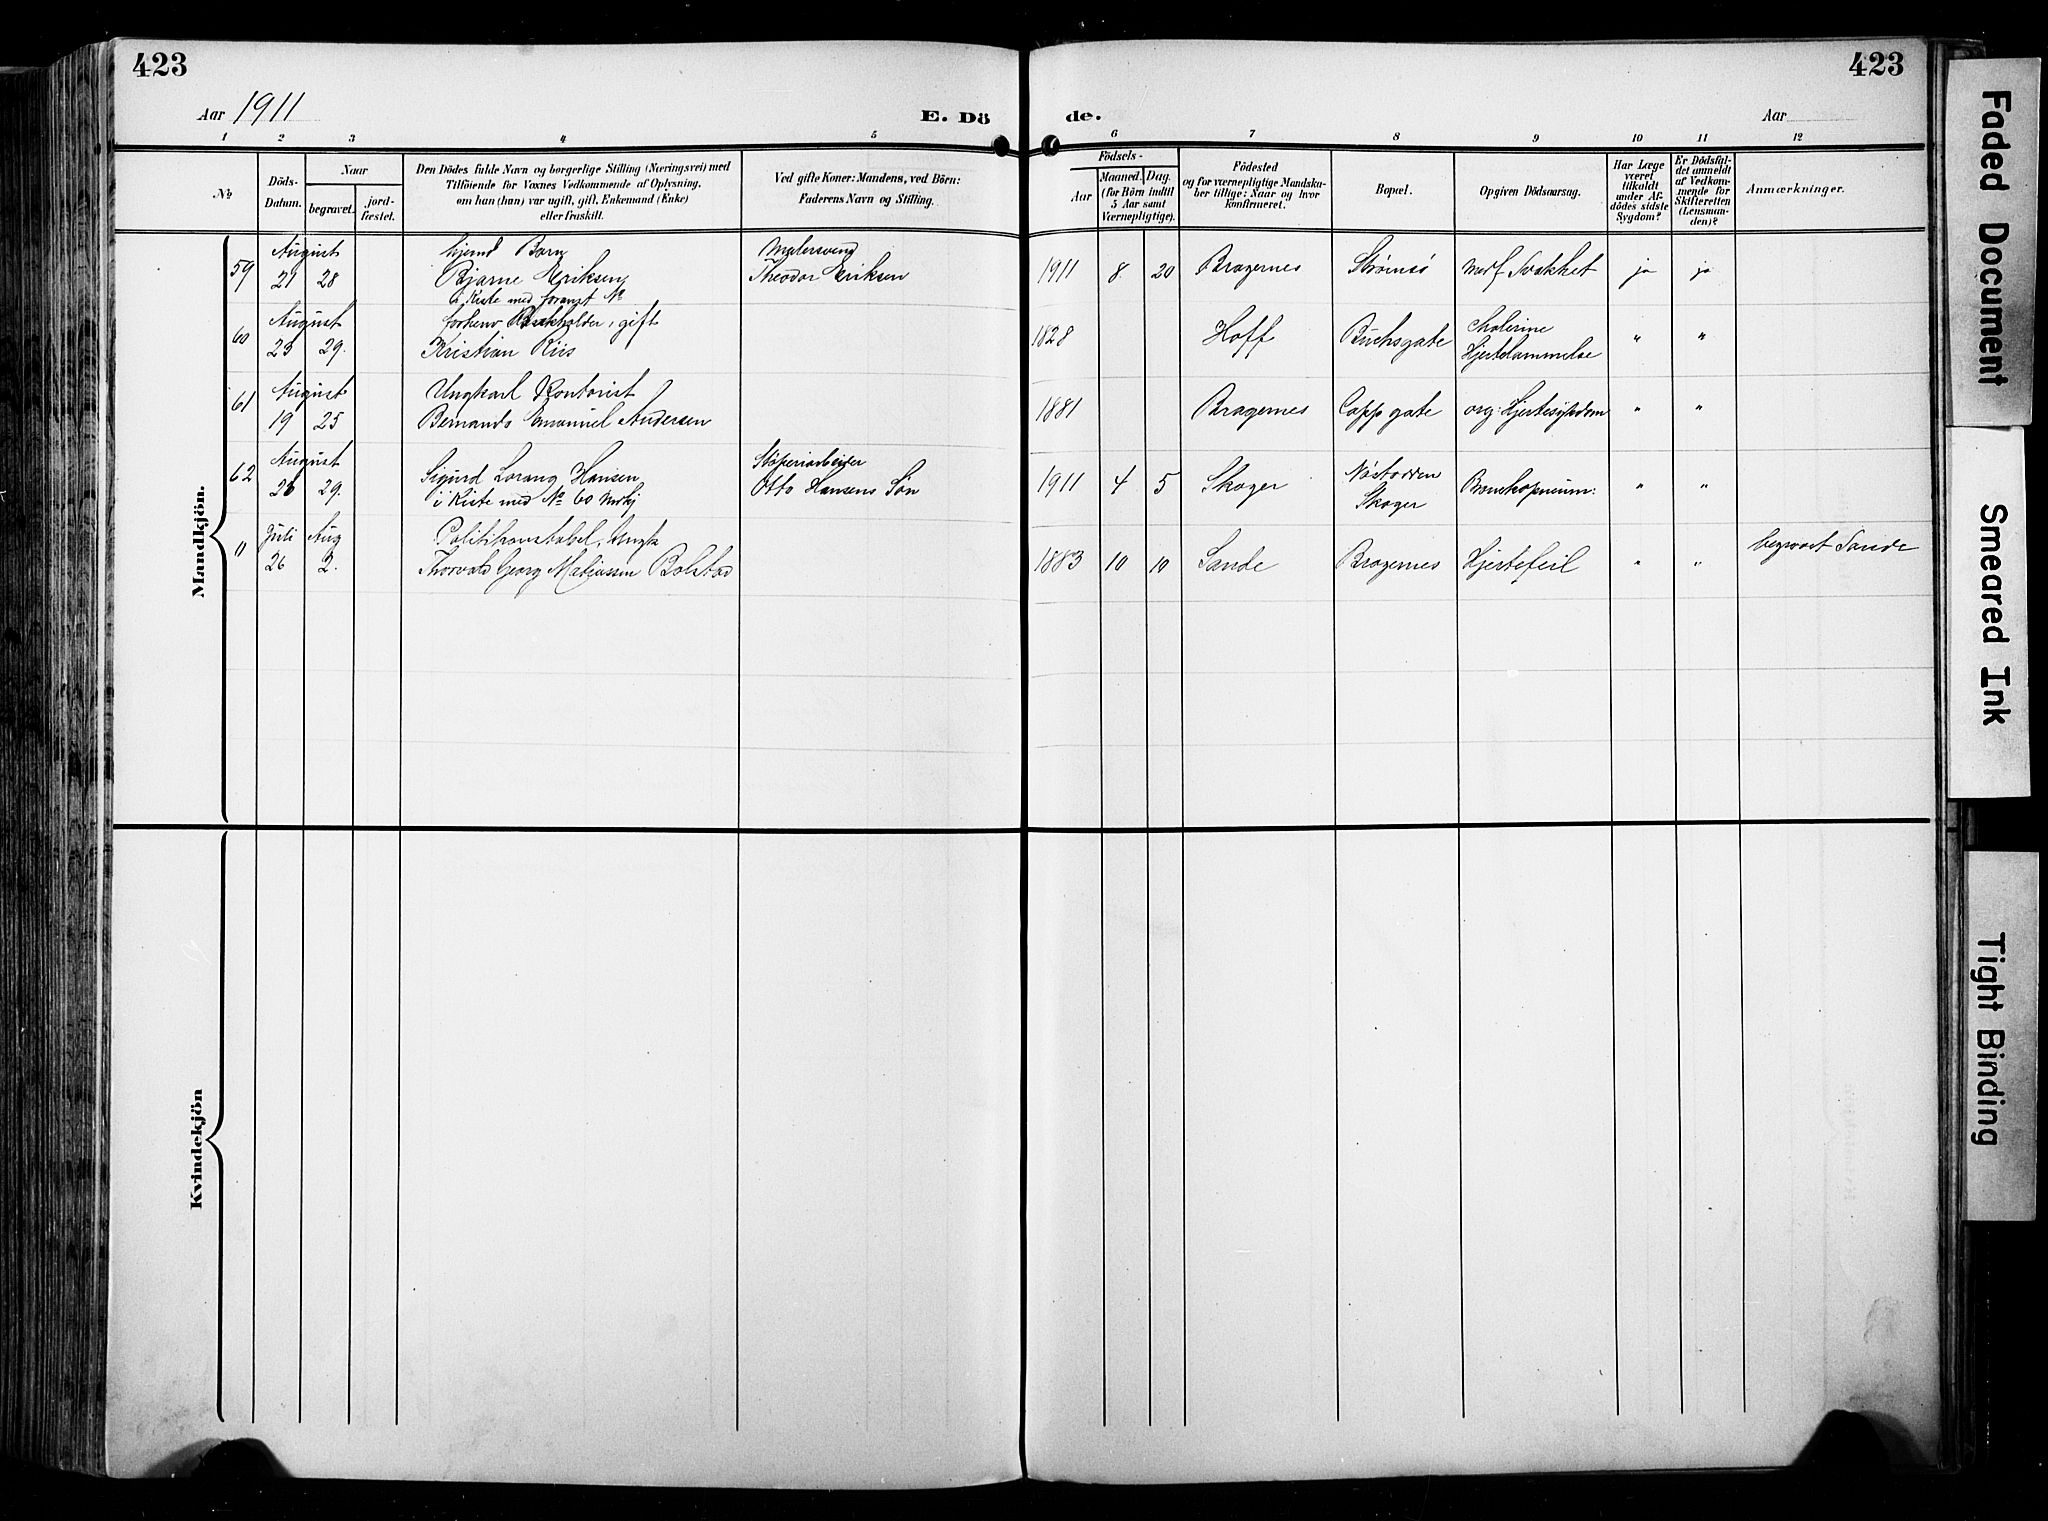 423
423
Aar 1911
E. Dö
de.
Aar
1 2 3 4 5
6 7 8 9 10 11 12
№
Döds-
Datum.
Naar
begravet.
jord-
fæstet.
Den Dödes fulde Navn og borgerlige Stilling (Næringsvei) med
Tilföiende for Voxnes Vedkommende af Oplysning,
om han (hun) var ugift, gift, Enkemand (Enke)
eller fraskilt.
Ved gifte Koner: Mandens, ved Börn:
Faderens Navn og Stilling.
Födsels-
Aar
Maaned. Dag.
(for Börn indtil
5 Aar samt
Værnepligtige).
Födested
og for værnepligtige Mandska-
ber tillige: Naar og hvor
konfirmeret.
Bopæl.
Opgiven Dödsaarsag.
Har Læge
været
tilkaldt
under Af-
dödes sidste
Sygdom?
Er Dödsfal-
det anmeldt
af Vedkom-
mende for
Skifteretten
(Lensman-
den)?
Anmærkninger.
Mandkjön.
59
August
21 28
hjemd Barn
Bjarne Eriksen
i Kiste med foranst №
Malersvend
Theodor Eriksen
1911 8 20 Bragernes Strømsø medf Svakhet ja ja
60
August
23 29.
forhenv gift
Kristian Riis
1828 Hoff Buchsgate
Cholerine
Hjertelammelse
" "
61
August
19 25
Ungkarl Kontorist
Bernands Emanuel Andersen
1881 Bragernes Cappgate org: Hjertesygdom " "
62
August
26 29.
Sigurd Lorang Hansen
i Kiste med № 60
Støperiarbeider
Otto Hansens Søn
1911 4 5 Skoger
Nøstodden
Skoger
Bronchopneum: " "
11
Juli Aug
26 2.
Politikonstabel, Ungk
Thorvald Georg Matiassen Bolstad
1883 10 10 Sande Bragernes Hjertefeil " "
begravet Sande
Kvindekjön
Faded Document
Smeared Ink
Tight Binding